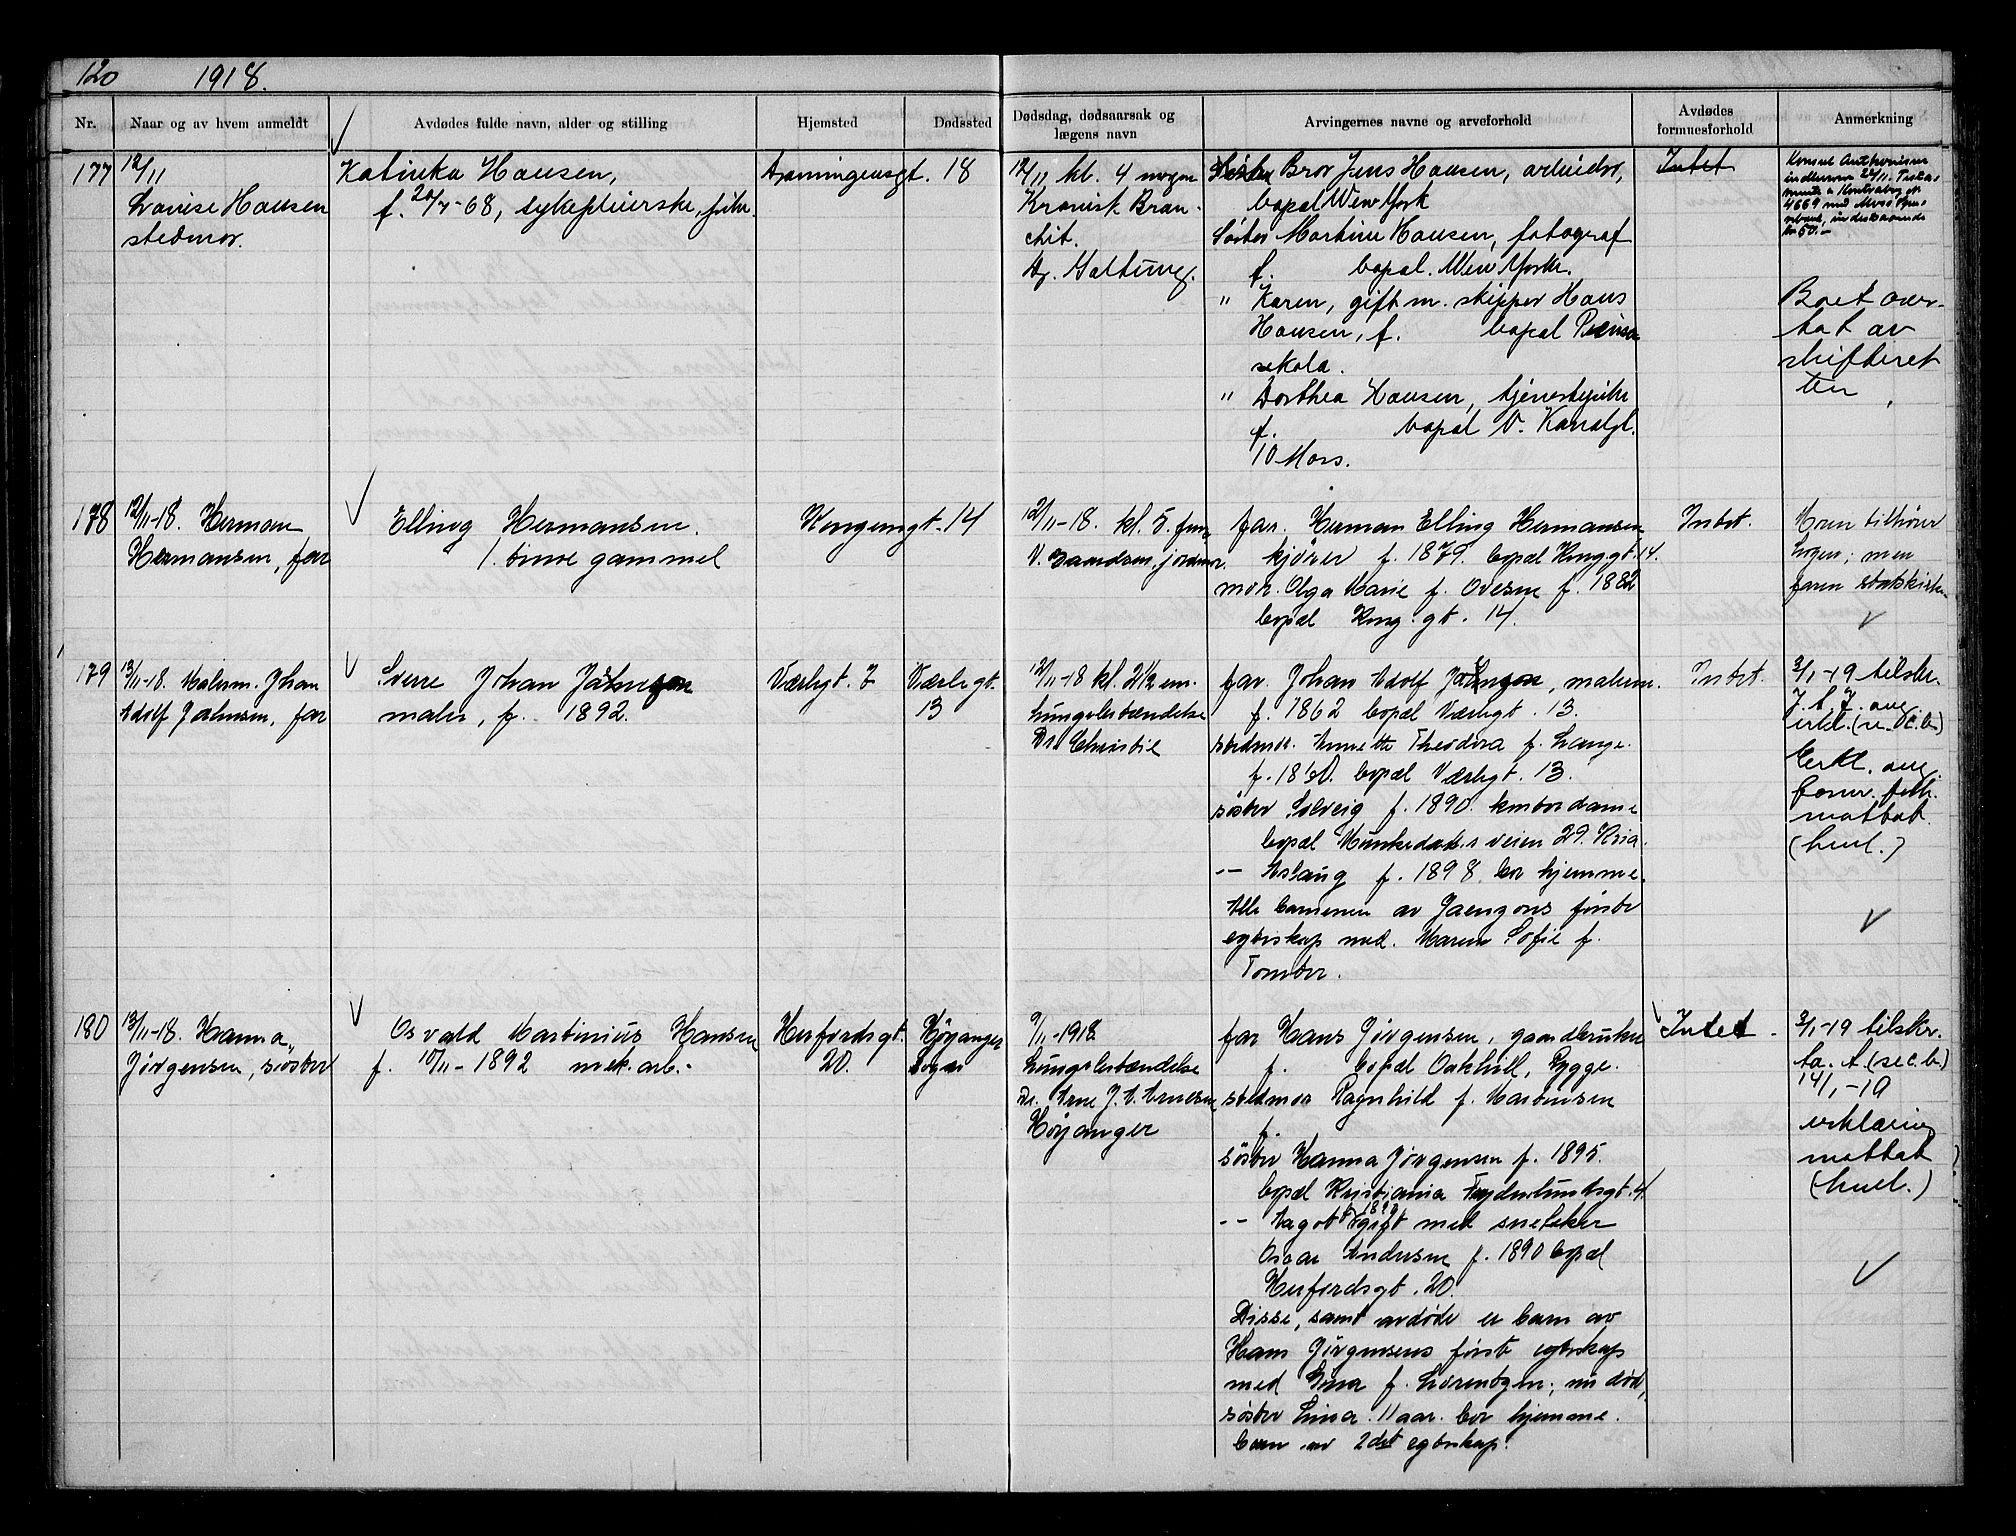 120 1918.
Nr. Naar og av hvem anmeldt Avdødes fulde navn, alder og stilling Hjemsted Dødssted Dødsdag, dødsaarsak og lægens navn Arvingernes navne og arveforhold Avdødes formuesforhold Anmerkning
177
12/11
Lovise Hansen
stedmor.
Katinka Hansen,
f. 20/7-68, sykepleierske,
Dronningensgt. 18
12/11 kl. 4 morgen
Kronisk Bron-
chit.
Dr. Galtung.
Bror Jens Hansen, arbeider,
bopæl New York
Søster Martine Hansen, fotograf
f. bopæl. New York.
" Karen, gift m. skipper Hans
Hansen, f. bopæl Pensa
sekola.
" Dorthea Hansen, tjenestepike
f. bopæl V. Kanalgt.
10 Moss.
Intet
4669 med Moss Spa-
rebank, indestaaende
kr 50.-
Boet over-
tat av
skifteret
ten
178
12/11-18. Herman
Hermansen, far
Elling Hermansen.
1. time gammel
Kongensgt. 14
12/11-18. kl. 5. fm.
V. jordmor.
far. Herman Elling Hermansen
kjører f. 1879. bopæl Kong.gt. 14.
mor. Olga Marie f. Ovesen f. 1882
bopæl Kong.gt. 14.
Intet.
Moren tilhører
men
faren statskirken
179
13/11-18. Malerm. Johan
Adolf Jahnsen, far
Sverre Johan
maler, f. 1892.
Værlegt. 7
Værlegt.
13
12/11-18 kl. 2 1/2 em.
Lungebetændelse
Dr. Christie
far. Johan Adolf, malerm.
f. 1862 bopæl Værlegt. 13.
stedmor. Annette Theodora f. Lange.
f. bopæl Værlegt. 13.
søster Solveig f. 1890. kontordame
bopæl Munkedamsveien 29. Kria.
-- Aslaug f. 1898. bor hjemme.
Alle barnene av Jaenzons første
egteskap med. Maren Sofie f.
Tomter.
Intet.
3/1-19 tilskr.
J. A. J. ang.
erkl.
Erkl. ang.
mottat.
(henl.)
180
13/11-18. Hanna
Jørgensen, søster
Osvald Martinius Hansen
f. 10/11-1892 mek. arb.
Herfordsgt.
20.
Høyanger
Sogn
9/11-1918
Lungebetændelse
Dr. Arne J. A. Arnesen
Høyanger
far Hans Jørgensen, gaardbruker
f. bopæl Oakhill, Rygge.
stedmor Ragnhild f. Martinsen
f.
søster Hanna Jørgensen f. 1895.
bopæl Kristiania Frydenlundsgt. 4.
-- Dagot gift med snekker
Oscar Andersen f. 1890 bopæl
Herfordsgt. 20.
Disse, samt avdøde er barn av
Hans Jørgensens første egteskap
med Gina f. Lorentzen; nu død,
søster 11 aar. bor hjemme.
barn av 2det egteskap.
Intet
3/1-19 tilskr.
14/1-19
erklæring
mottat
(henl.)